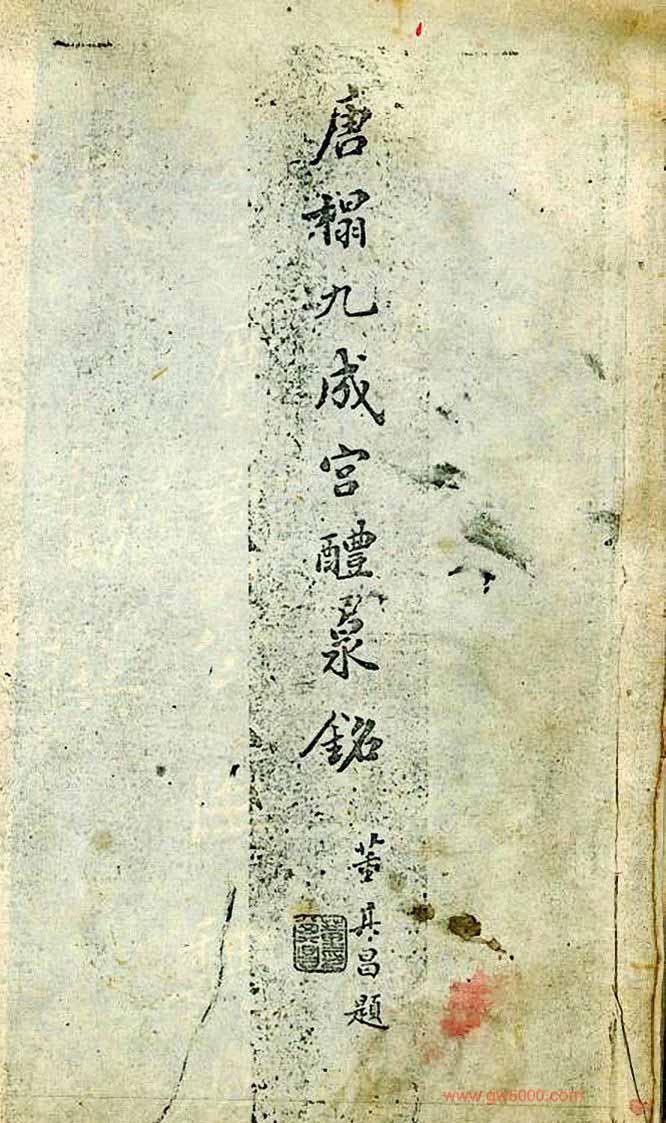 唐榻九成宫醴泉銘
董其昌題
www.gw6000.com